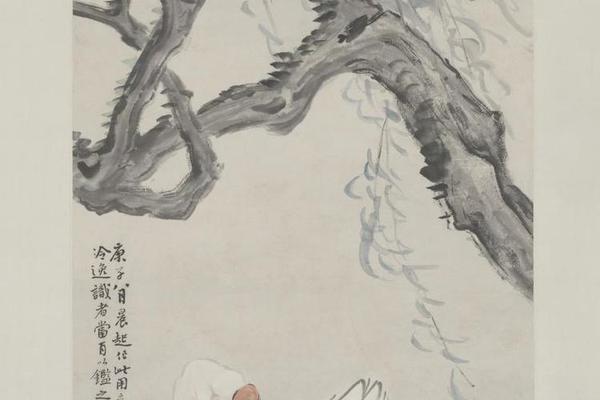 庚子八月晨起作此用
冷逸識者當有以鑑之